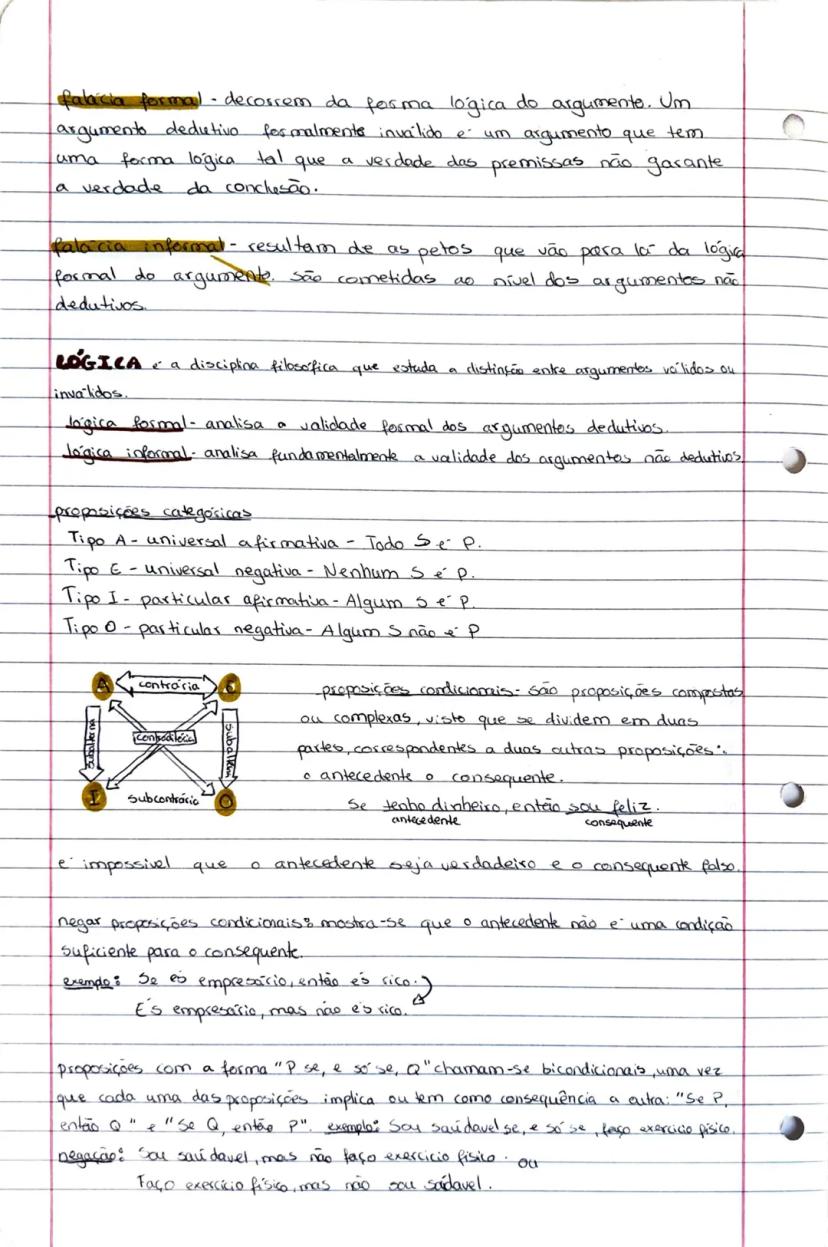 falácia formal - decorrem da forma lógica do argumento. Um
argumento dedutivo formalmente inválido é um argumento que tem
uma forma lógica tal que a verdade das premissas não garante
a verdade da conclusão.
falácia informal - resultam de aspetos que vão para lá da lógica
formal do argumento. são cometidas ao nível dos argumentos não
dedutivos.
LÓGICA é a disciplina filosófica que estuda a distinção entre argumentos válidos ou
inválidos.
lógica formal - analisa a validade formal dos argumentos dedutivos.
lógica informal - analisa fundamentalmente a validade dos argumentos não dedutivos.
proposições categóricas
Tipo A - universal afirmativa - Todo S é P.
Tipo E - universal negativa - Nenhum S é P.
Tipo I - particular afirmativa - Algum S é P.
Tipo O - particular negativa - Algum S não é P
A contrária E
subalterna contraditória subalterna
I subcontrário O
proposições condicionais - são proposições compostas
ou complexas, visto que se dividem em duas
partes, correspondentes a duas outras proposições:
o antecedente o consequente.
Se tenho dinheiro, então sou feliz.
antecedente consequente
é impossível que o antecedente seja verdadeiro e o consequente falso.
negar proposições condicionais: mostra-se que o antecedente não é uma condição
suficiente para o consequente.
exemplo: Se és empresário, então és rico.
És empresário, mas não és rico.
proposições com a forma "P se, e só se, Q" chamam-se bicondicionais, uma vez
que cada uma das proposições implica ou tem como consequência a outra: "Se P,
então Q" e "Se Q, então P". exemplo: Sou saúdavel se, e só se, faço exercício físico.
negação: Sou saúdavel, mas não faço exercício físico. ou
Faço exercício físico, mas não sou saúdavel.